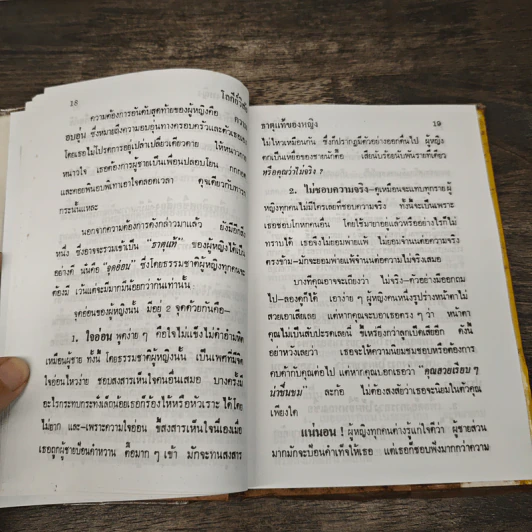 18
โลกีย์วิสัย
ความต้องการอันดับสุดท้ายของผู้หญิงคือ ความ
อบอุ่น ซึ่งหมายถึงความอบอุ่นทางครอบครัวและตัวเธอเอง
โดยเธอไม่โปรดการอยู่เปล่าเปลี่ยวเดียวดาย ให้หนาวกาย
หนาวใจ เธอต้องการผู้ชายเป็นเพื่อนปลอบโยน กกกอด
และคอยพนอบพิเทาเอาใจตลอดเวลา ดุจเดียวกับทาส
กระนั้นแหละ
นอกจากความต้องการดังกล่าวมาแล้ว ยังมีอีกสิ่ง
หนึ่ง ซึ่งอาจจะรวมเข้าเป็น "ธาตุแท้" ของผู้หญิงได้เป็น
อย่างดี นั่นคือ "จุดอ่อน" ซึ่งโดยธรรมชาติผู้หญิงทุกคนจะ
ต้องมี เว้นแต่จะมีมากน้อยกว่ากันเท่านั้น
จุดอ่อนของผู้หญิงนั้น มีอยู่ 2 จุดด้วยกันคือ-
1. ใจอ่อน พูดง่าย ๆ คือใจไม่แข็งไม่ดำอำมหิต
เหมือนผู้ชาย ทั้งนี้ โดยธรรมชาติผู้หญิงนั้น เป็นเพศที่มีจิต
ใจอ่อนไหวง่าย ชอบสงสารเห็นใจคนอื่นเสมอ บางครั้งมี
อะไรกระทบกระทั่งเล็กน้อยเธอก็ร้องไห้หรือหัวเราะ ได้โดย
ไม่ยาก และ-เพราะความใจอ่อน ขี้สงสารเห็นใจนี่เองเมื่อ
เธอถูกผู้ชายป้อนคำหวาน ตื้อมาก ๆ เข้า มักจะทนสงสาร
ธาตุแท้ของหญิง
19
ไม่ไหวเหมือนกัน ซึ่งก็ปรากฏมีตัวอย่างออกดื่นไป ผู้หญิง
ตกเป็นเหยื่อของชายนักคือ เสียนับร้อยนับพันรายทีเดียว
หรือคุณว่าไม่จริง ?
2. ไม่ชอบความจริง-ดูเหมือนจะแทบทุกรายผู้
หญิงทุกคนไม่มีใครเลยที่ชอบความจริง ทั้งนี้จะเป็นเพราะ
เธอชอบโกหกคนอื่น โดยใช้มายาอยู่แล้วหรืออย่างไรก็ไม่
ทราบได้ เธอจึงไม่ยอมพ่ายแพ้ ไม่ยอมจำนนต่อความจริง
ตรงข้าม-มักจะยอมพ่ายแพ้จำนนต่อความไม่จริงเสมอ
บางทีคุณอาจจะเถียงว่า ไม่จริง-ตัวอย่างมีออกถม
ไป-ลองดูก็ได้ เอาง่าย ๆ ผู้หญิงคนหนึ่งรูปร่างหน้าตาไม่
สวยเอาเสียเลย แต่หากคุณจะบอกเธอตรง ๆ ว่า หน้าตา
คุณไม่เป็นสับปะรดเลยนี่ ขี้เหร่ยิ่งกว่าลูกเป็ดเสียอีก ดังนี้
อย่าหวังเลยว่า เธอจะให้ความนิยมชมชอบหรือต้องการ
คบค้ากับคุณต่อไป แต่หากคุณบอกเธอว่า "คุณสวยเรียบ ๆ
น่าชื่นชม" ละก้อ ไม่ต้องสงสัยว่าเธอจะนิยมในตัวคุณ
เพียงใด
แน่นอน ! ผู้หญิงทุกคนต่างรู้แก่ใจดีว่า ผู้ชายส่วน
มากมักจะป้อนคำเท็จให้เธอ แต่เธอก็ชอบฟังมากกว่าความ